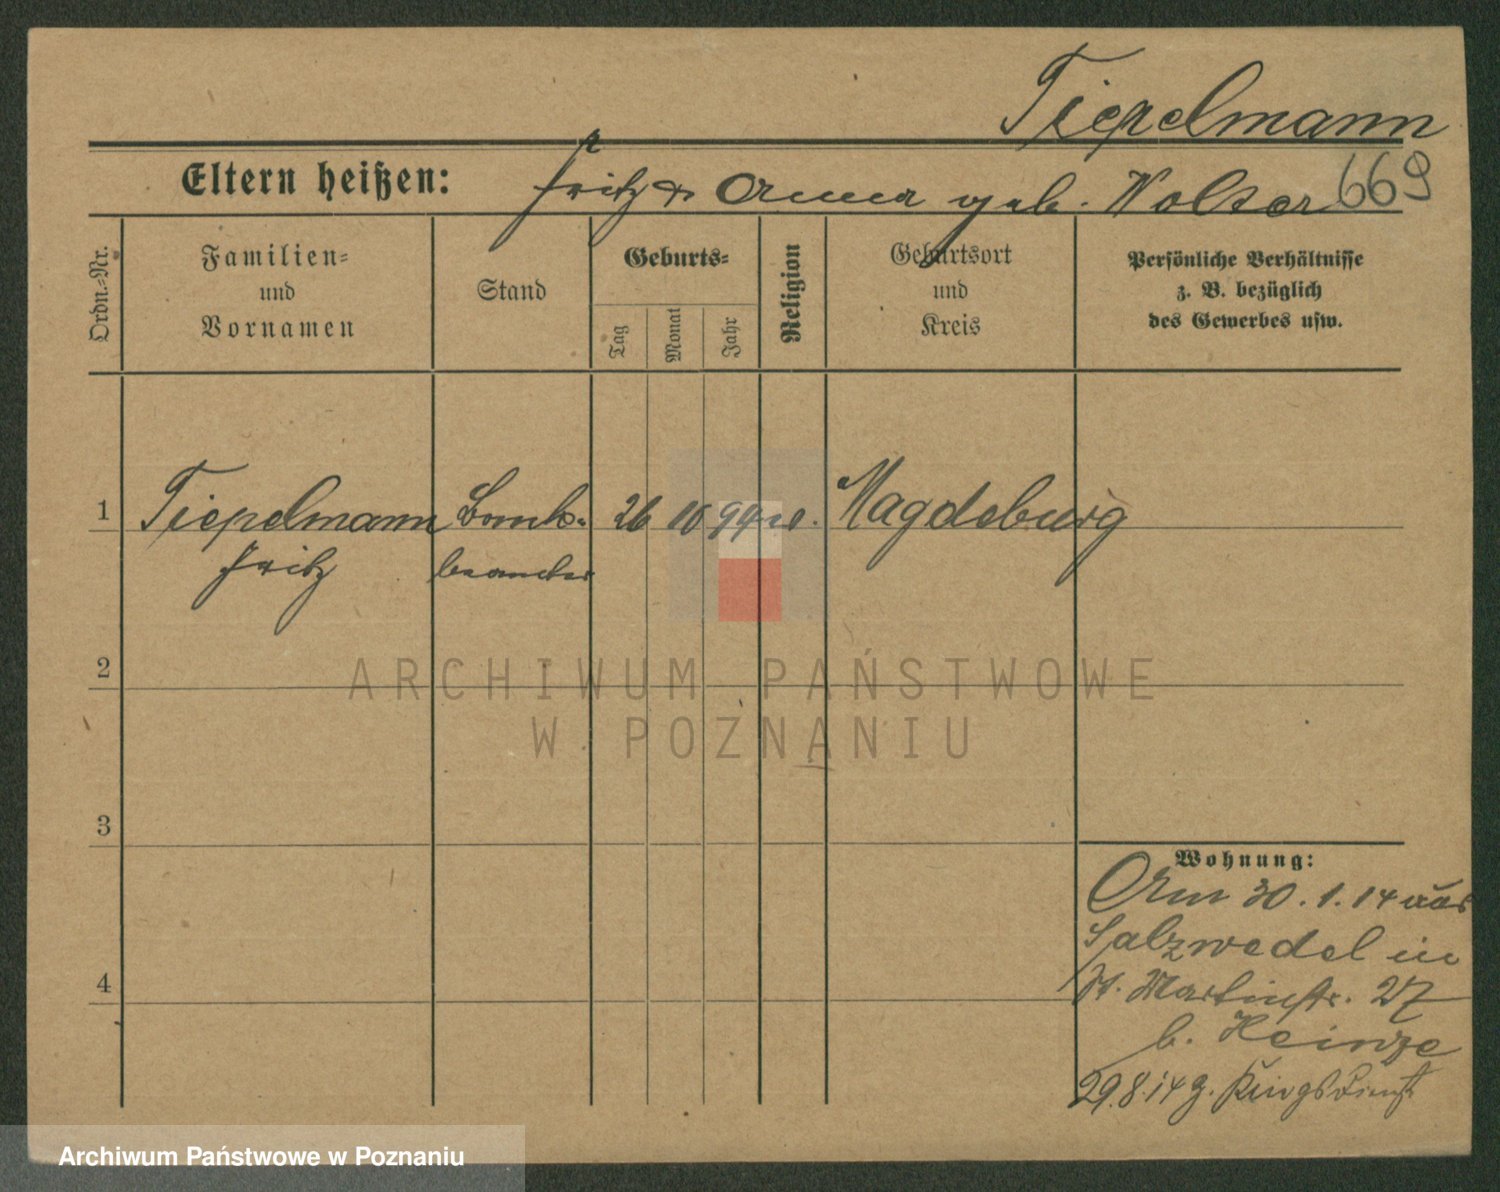 Tiepelmann
Eltern heißen: Fritz & Anna geb. Wolter 669
Ordn.-Nr.
Familien=
und
Vornamen
Stand
Geburts=
Tag
Monat
Jahr
Religion
Geburtsort
und
Kreis
Persönliche Verhältnisse
z. B. bezüglich
des Gewerbes usw.
1 Tiepelmann Bank- 26 10 94 ev. Magdeburg
Fritz beamter
2
3
4
Wohnung:
Am 30.1.14 aus
Salzwedel in
St. Martinstr. 27
b. Heinze
29.8.14 z. Kriegsdienst
ARCHIWUM PAŃSTWOWE
W POZNANIU
Archiwum Państwowe w Poznaniu